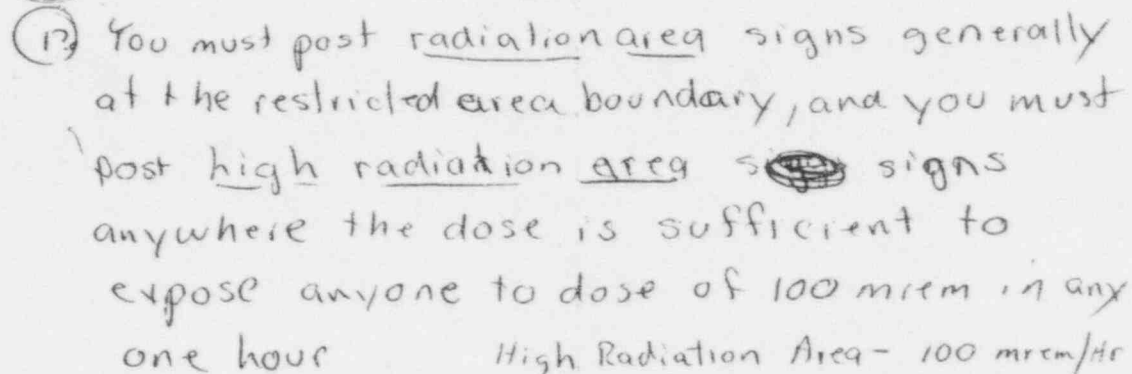 13) You must post radiation area signs generally
at the restricted area boundary, and you must
post high radiation area signs
anywhere the dose is sufficient to
expose anyone to dose of 100 mrem in any
one hour High Radiation Area - 100 mrem/Hr